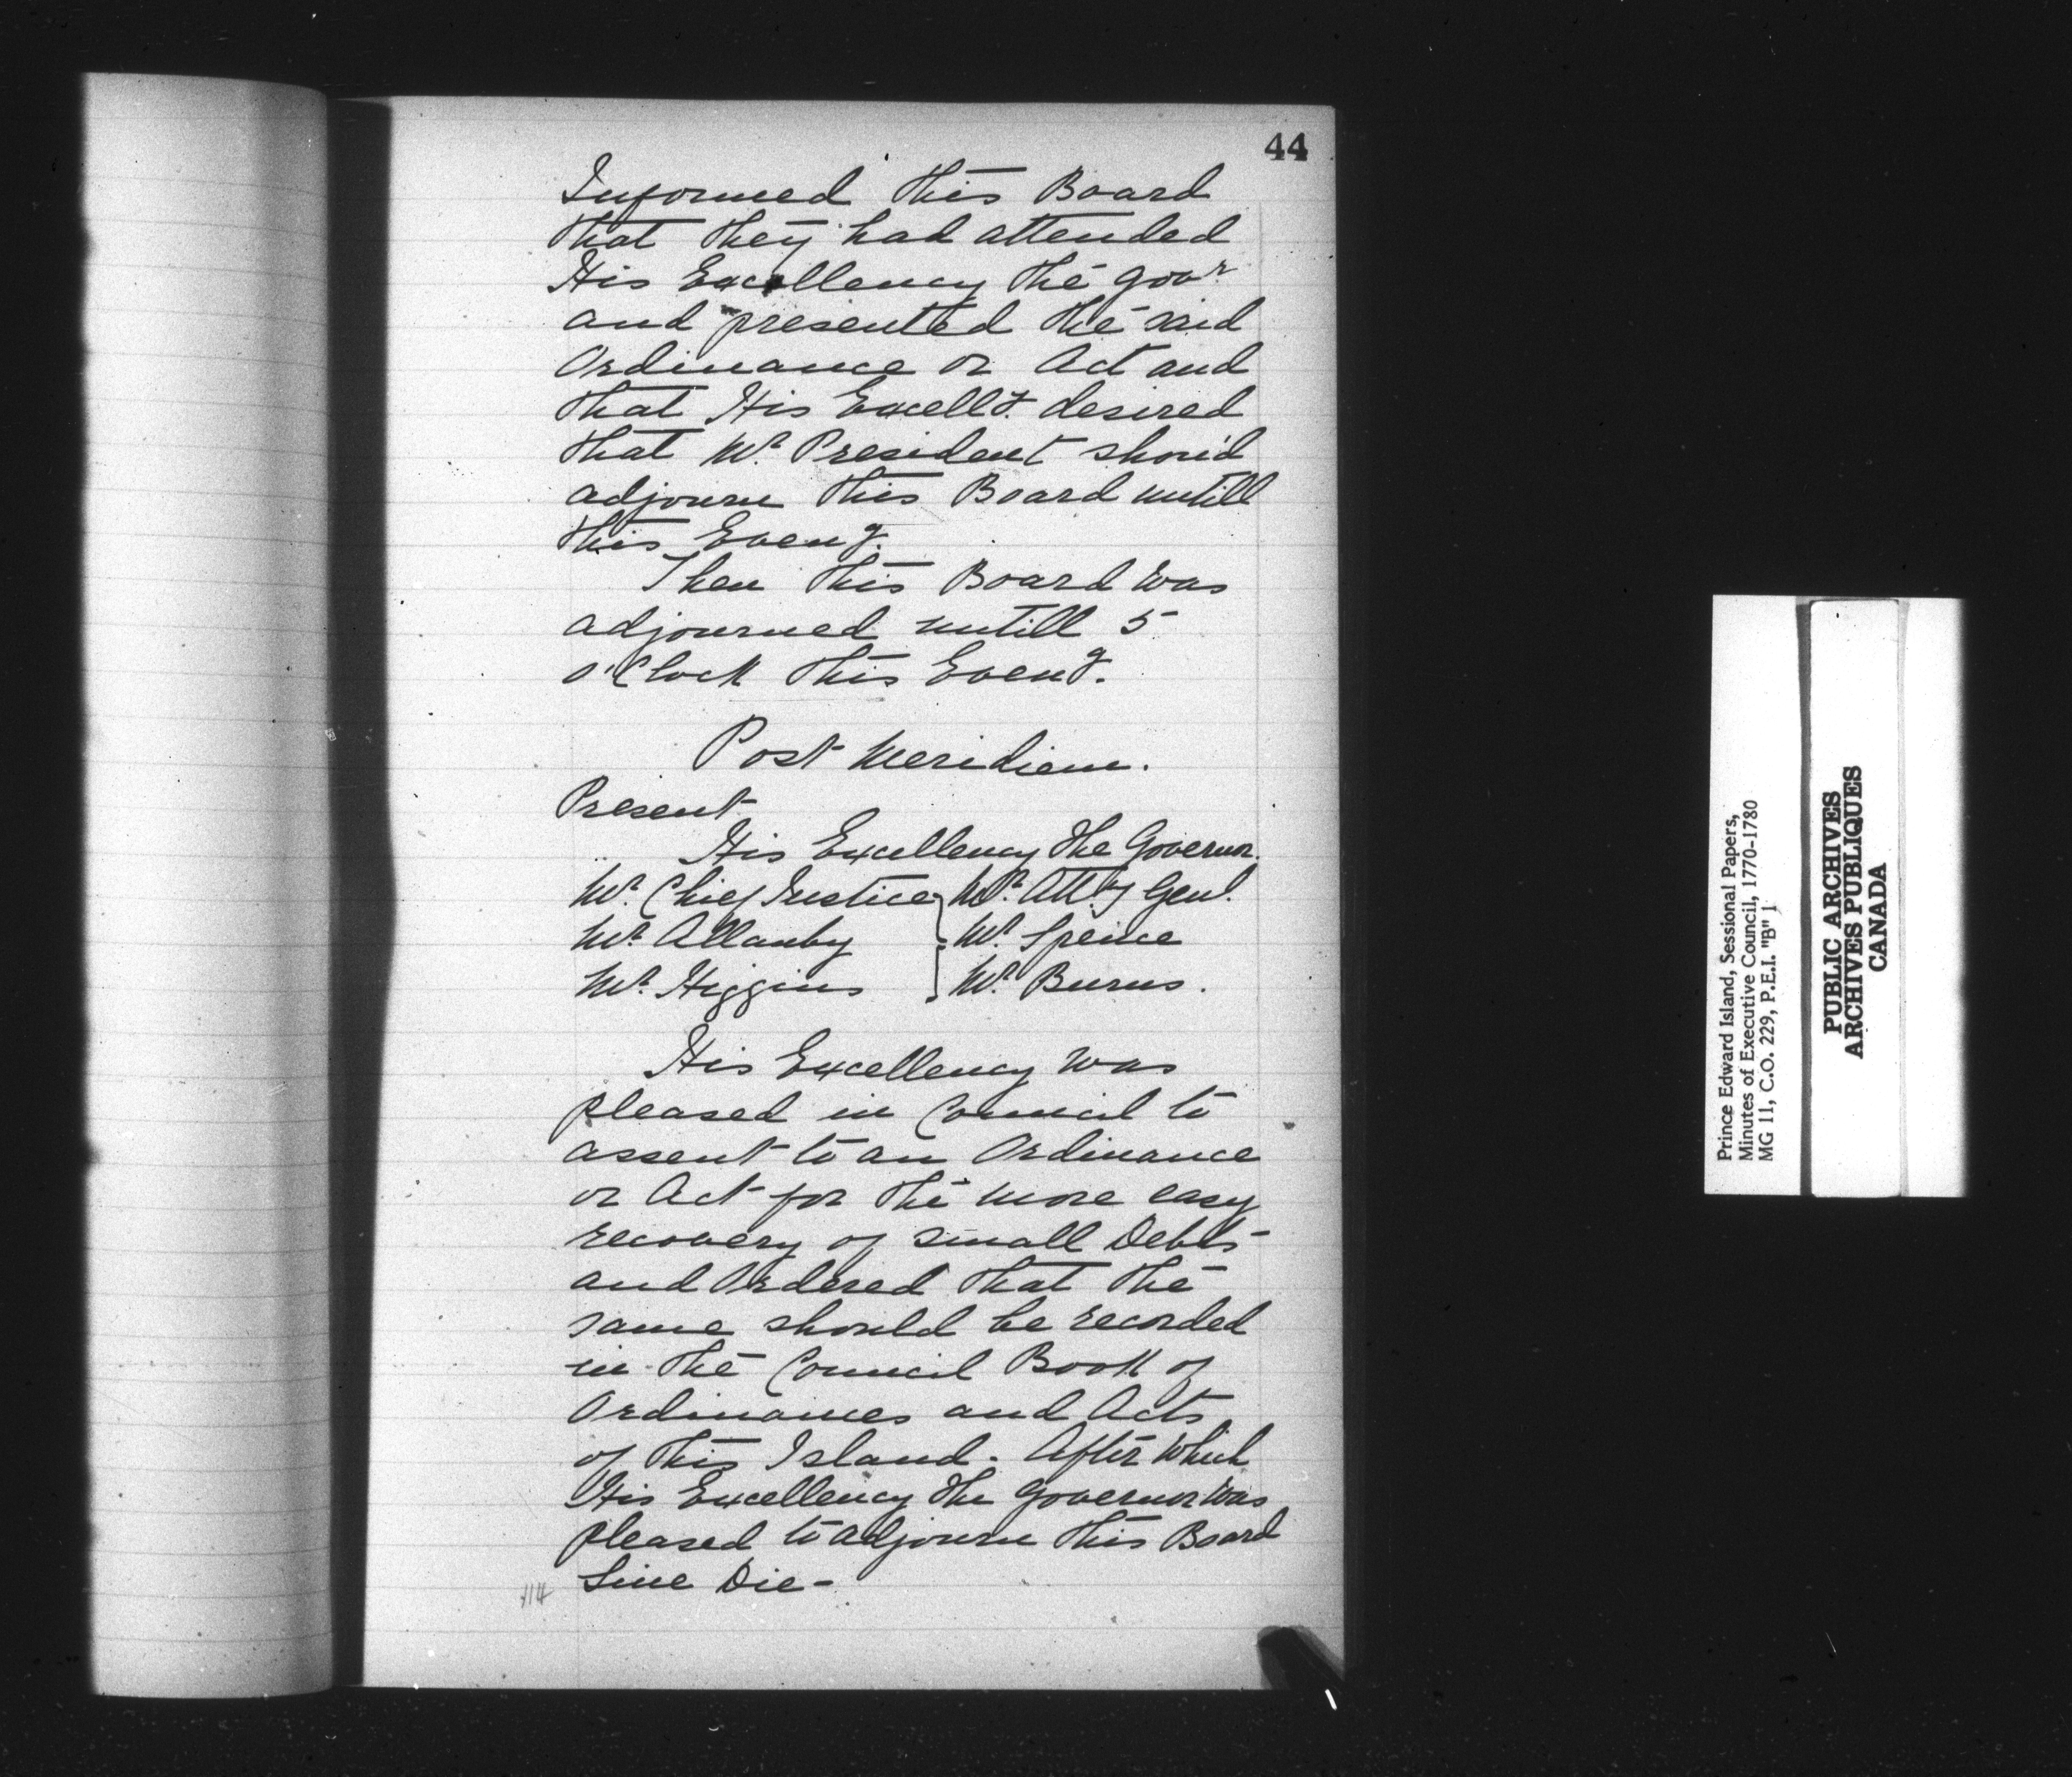 44
Informed this Board
that they had attended
His Excellency the Govr.
and presented the said
Ordinance or Act and
that His Excelly. desired
that Mr. President shou'd
adjourn this Board untill
this Eveng.
Then this Board was
adjourned untill 5
o'Clock this Eveng.
Post Meridiem.
Present
His Excellency the Governor.
Mr. Chief Justice } Mr. Atty. Genl.
Mr. Allanby } Mr. Spence
Mr. Higgins } Mr. Burns.
His Excellency was
pleased in Council to
assent to an Ordinance
or Act for the more easy
recovery of small Debts-
and Ordered that the
same should be recorded
in the Council Book of
Ordinances and Acts
of this Island. After which
His Excellency the Governor was
pleased to adjourn this Board
Sine Die-
114
Prince Edward Island, Sessional Papers,
Minutes of Executive Council, 1770-1780
MG 11, C.O. 229, P.E.I. "B" 1
PUBLIC ARCHIVES
ARCHIVES PUBLIQUES
CANADA